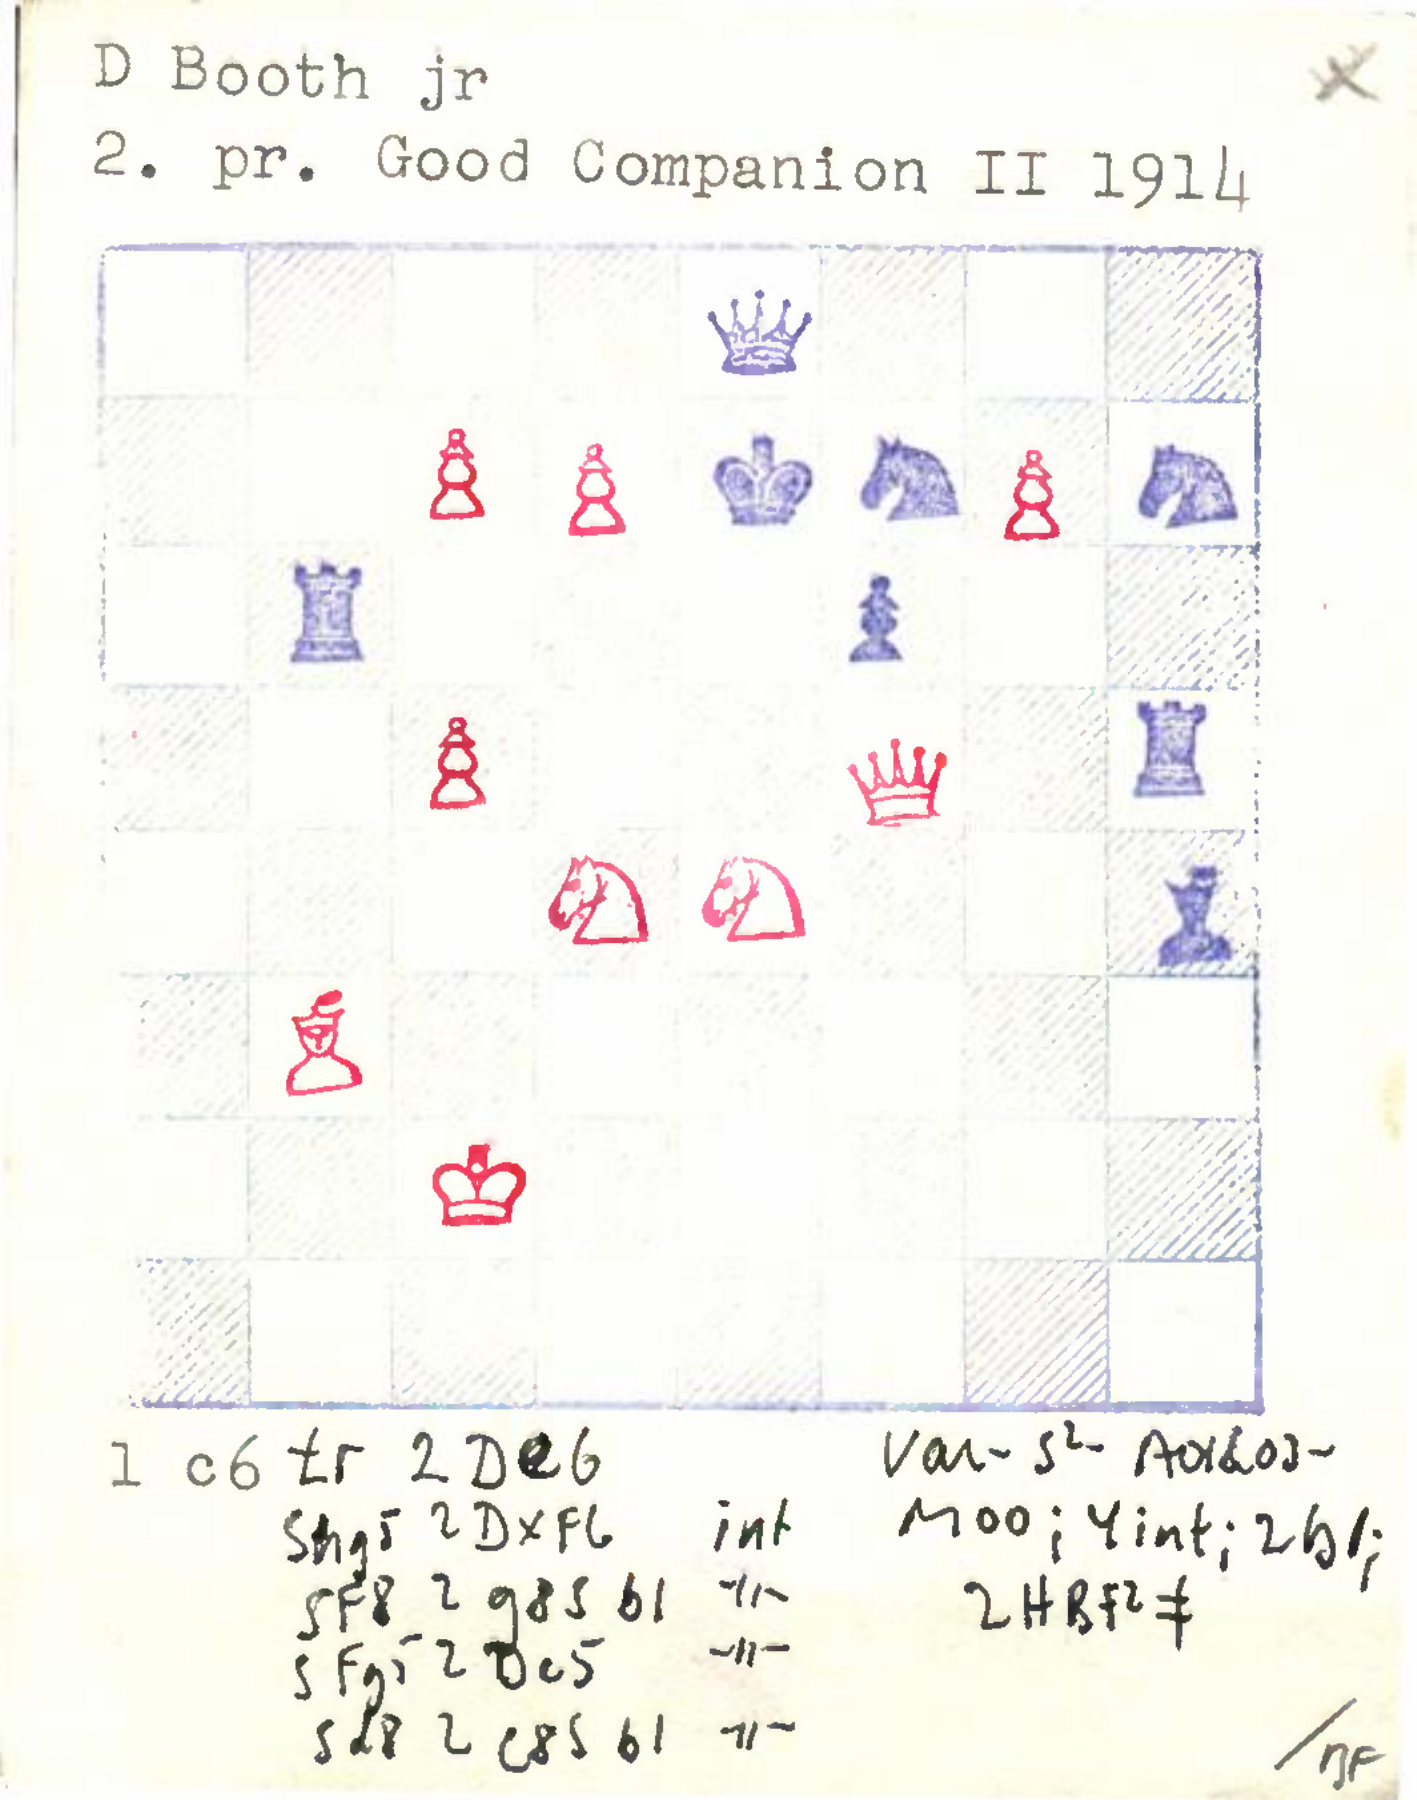 D Booth jr
2. pr. Good Companion II 1914
1 c6 tr 2 De6
Shg5 2 DxF6 int
SF8 2 g8S bl -"-
SFg5 2 Dc5 -"-
Sd8 2 c8S bl -"-
Var- S²-
M00; 4int; 2bl;
2HBF2‡
/BF